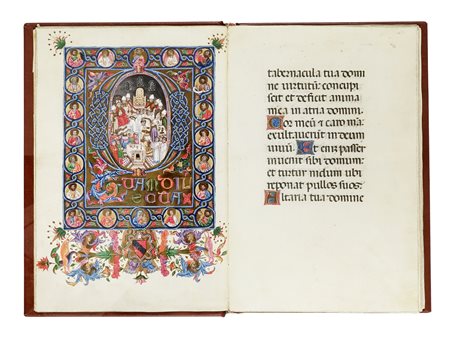 QUAM DIL
ECTA
tabernacula tua domi
ne virtutū: concupi
scit et deficit anima
mea in atria domini.
Cor meū & caro mea
exultaverūt in deum
vivū. Et eni passer
invenit sibi domum:
et turtur nidum ubi
reponat pullos suos.
Altaria tua domine